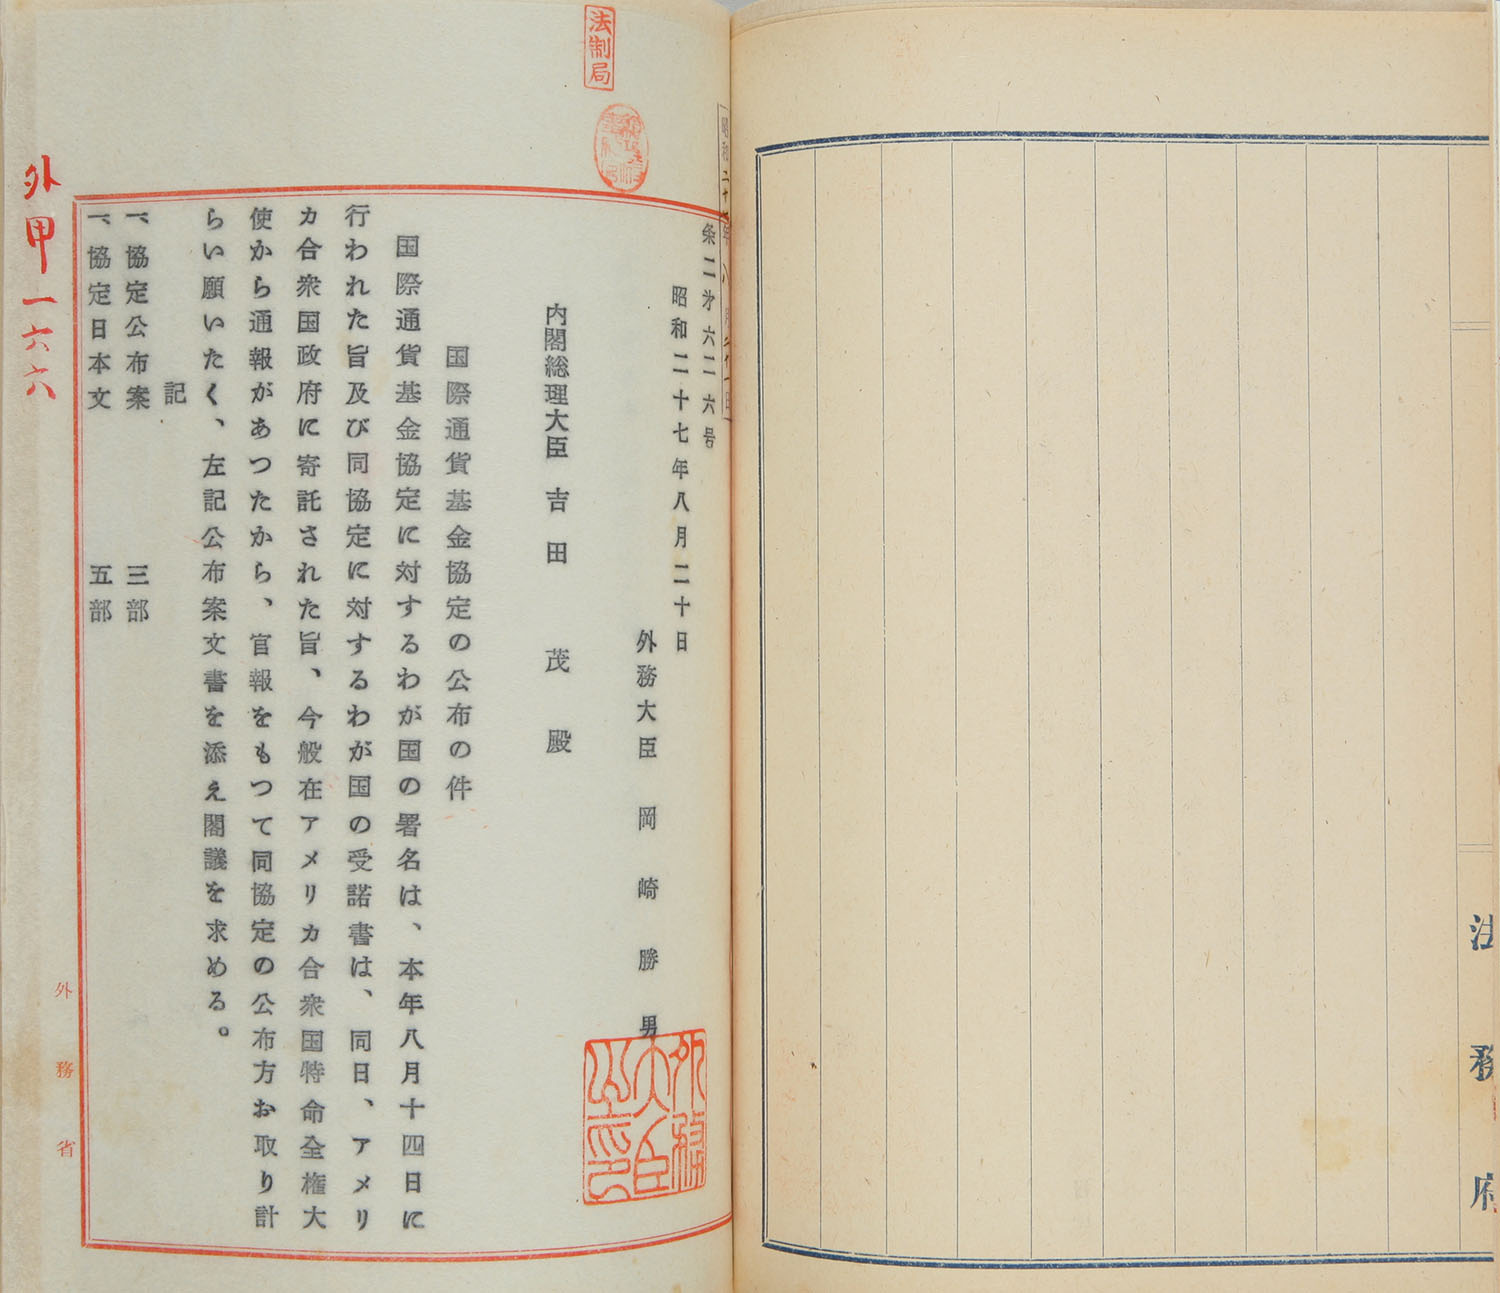 法務府
法制局
条二才六二一六号
昭和二十七年八月二十日
外務大臣 岡崎勝男
外務大臣之印
内閣総理大臣 吉田 茂 殿
国際通貨基金協定の公布の件
国際通貨基金協定に対するわが国の署名は、本年八月十四日に
行われた旨及び同協定に対するわが国の受諾書は、同日、アメリ
カ合衆国政府に寄託された旨、今般在アメリカ合衆国特命全権大
使から通報があつたから、官報をもつて同協定の公布方お取り計
らい願いたく、左記公布案文書を添え閣議を求める。
記
一、協定公布案 三部
一、協定日本文 五部
外務省
外甲一六六